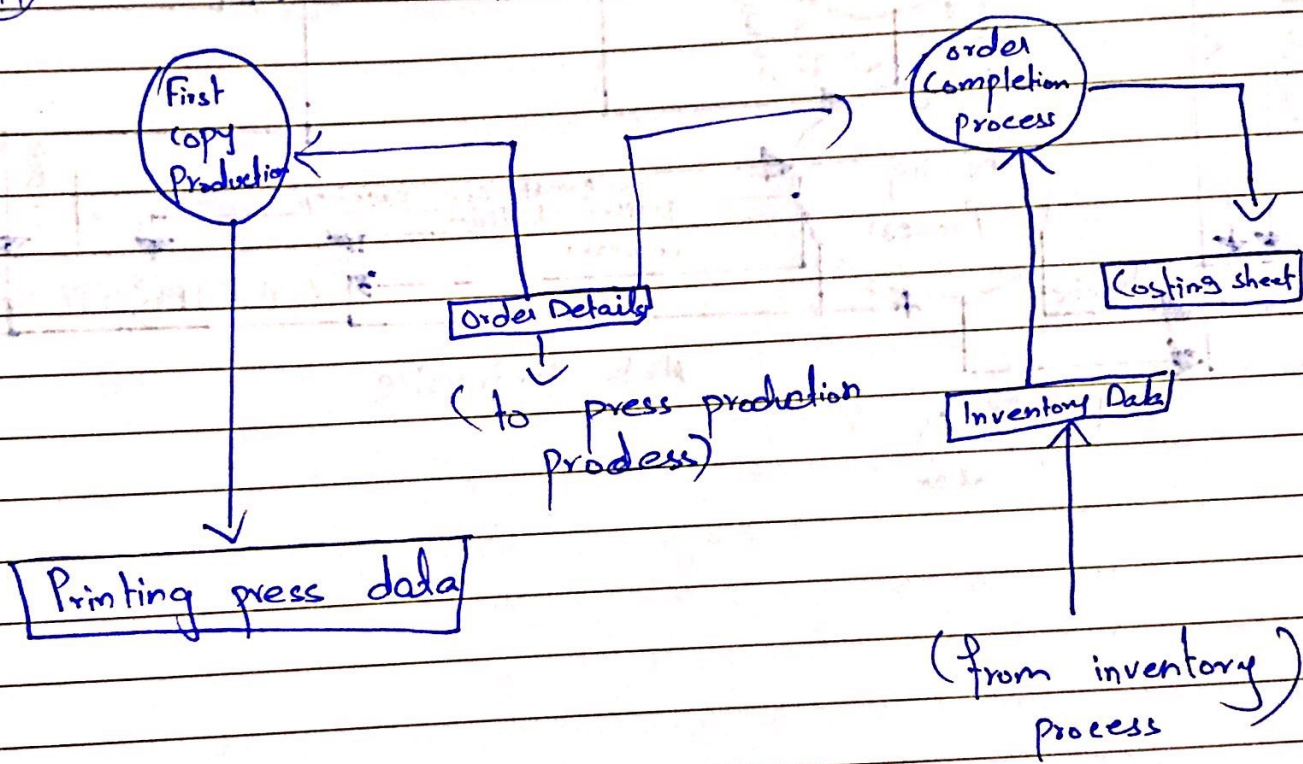 First
copy
Production
order
Completion
process
Order Details
Costing sheet
(to press production
prodess)
Inventory Data
Printing press data
(from inventory)
process